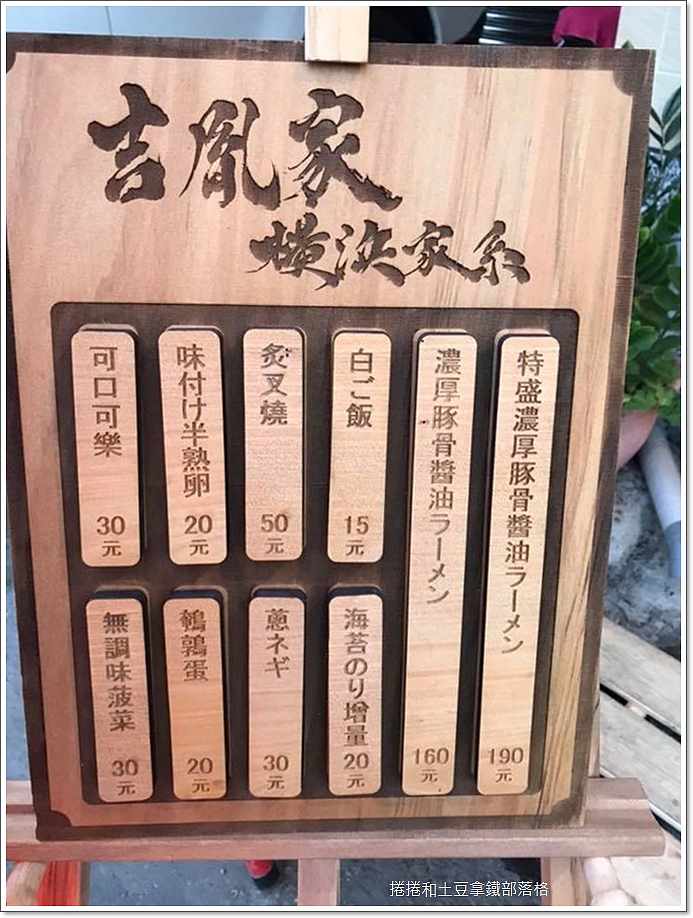 吉胤家
横浜家系
特盛濃厚豚骨醬油ラーメン
190元
濃厚豚骨醬油ラーメン
160元
白ご飯
15元
炙叉燒
50元
味付け半熟卵
20元
可口可樂
30元
海苔のり增量
20元
蔥ネギ
30元
鵪鶉蛋
20元
無調味菠菜
30元
捲捲和土豆拿鐵部落格